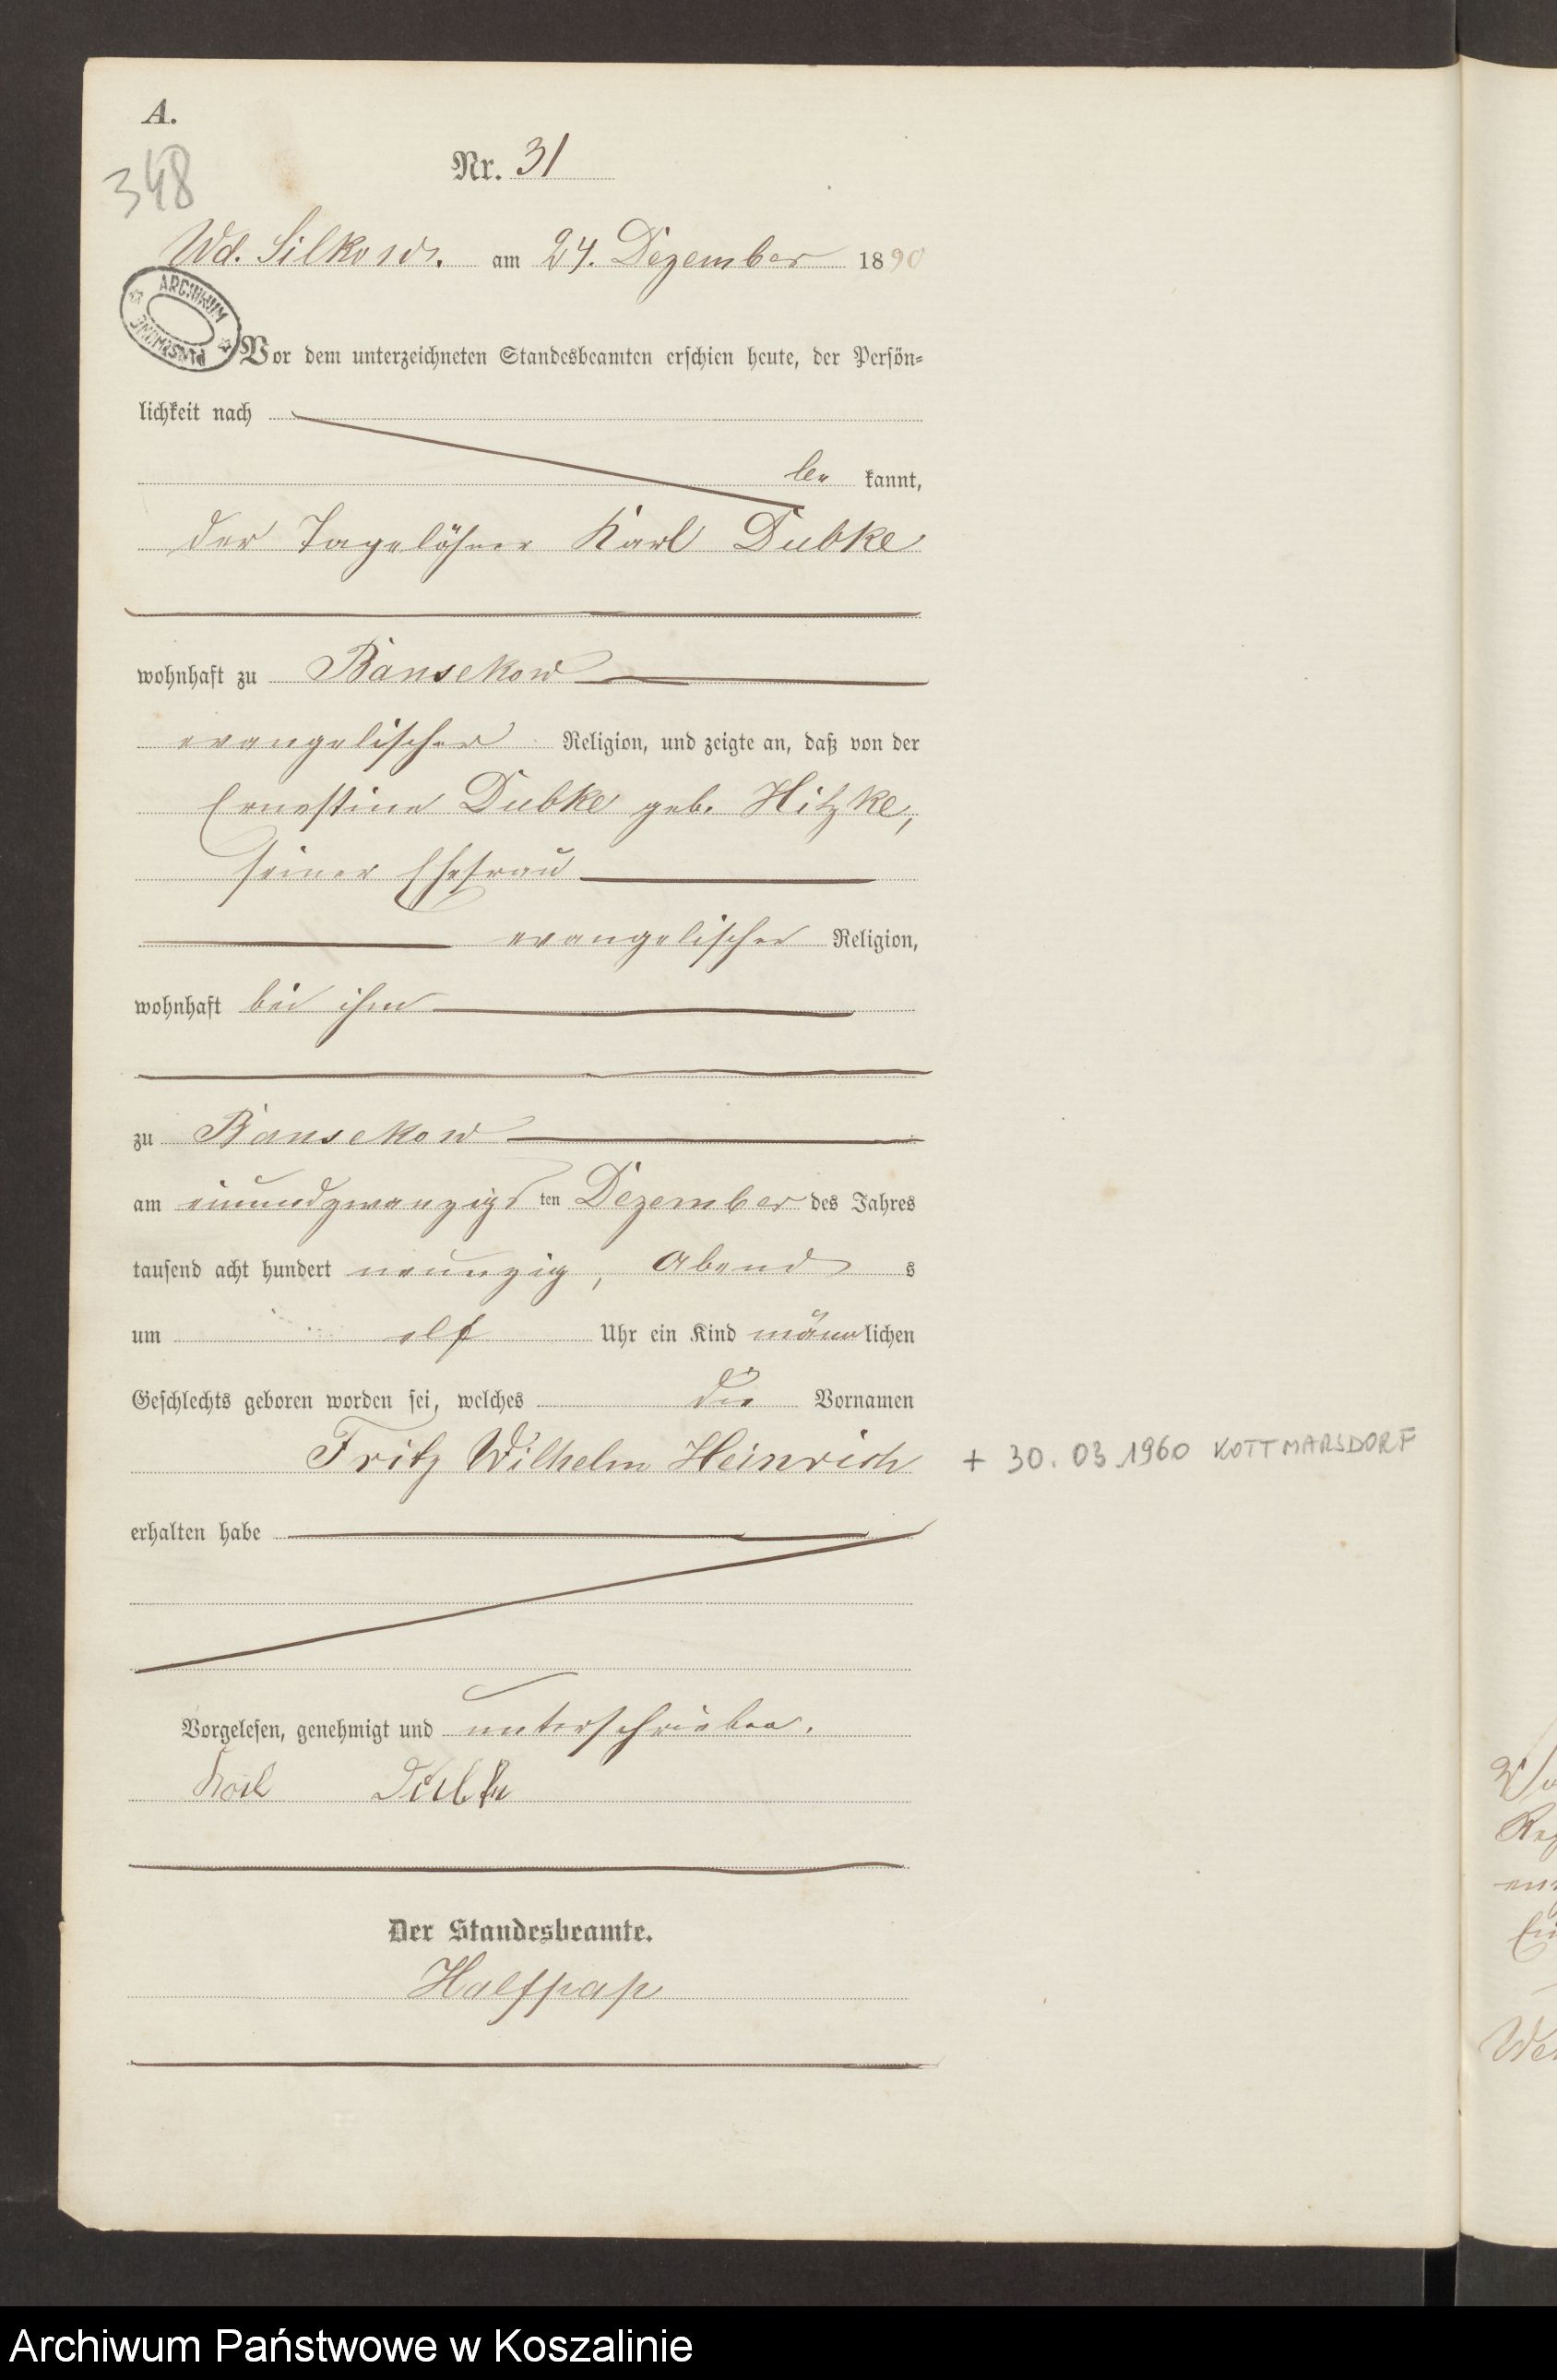 A.
348
Nr. 31
Wd. Silkow. am 24. Dezember 1890
ARCHIWUM PAŃSTWOWE
Vor dem unterzeichneten Standesbeamten erschien heute, der Persön=
lichkeit nach
be kannt,
der Tagelöhner Karl Dubke
wohnhaft zu Bansekow
evangelischer Religion, und zeigte an, daß von der
Ernestine Dubke geb. Hitzke,
seiner Ehefrau
evangelischer Religion,
wohnhaft bei ihm
zu Bansekow
am einundzwanzigs ten Dezember des Jahres
tausend acht hundert neunzig, Abend s
um elf Uhr ein Kind männlichen
Geschlechts geboren worden sei, welches die Vornamen
Fritz Wilhelm Heinrich + 30.03.1960 KOTTMARSDORF
erhalten habe
Vorgelesen, genehmigt und unterschrieben.
Karl Dubke
Der Standesbeamte.
Halfpap
Archiwum Państwowe w Koszalinie